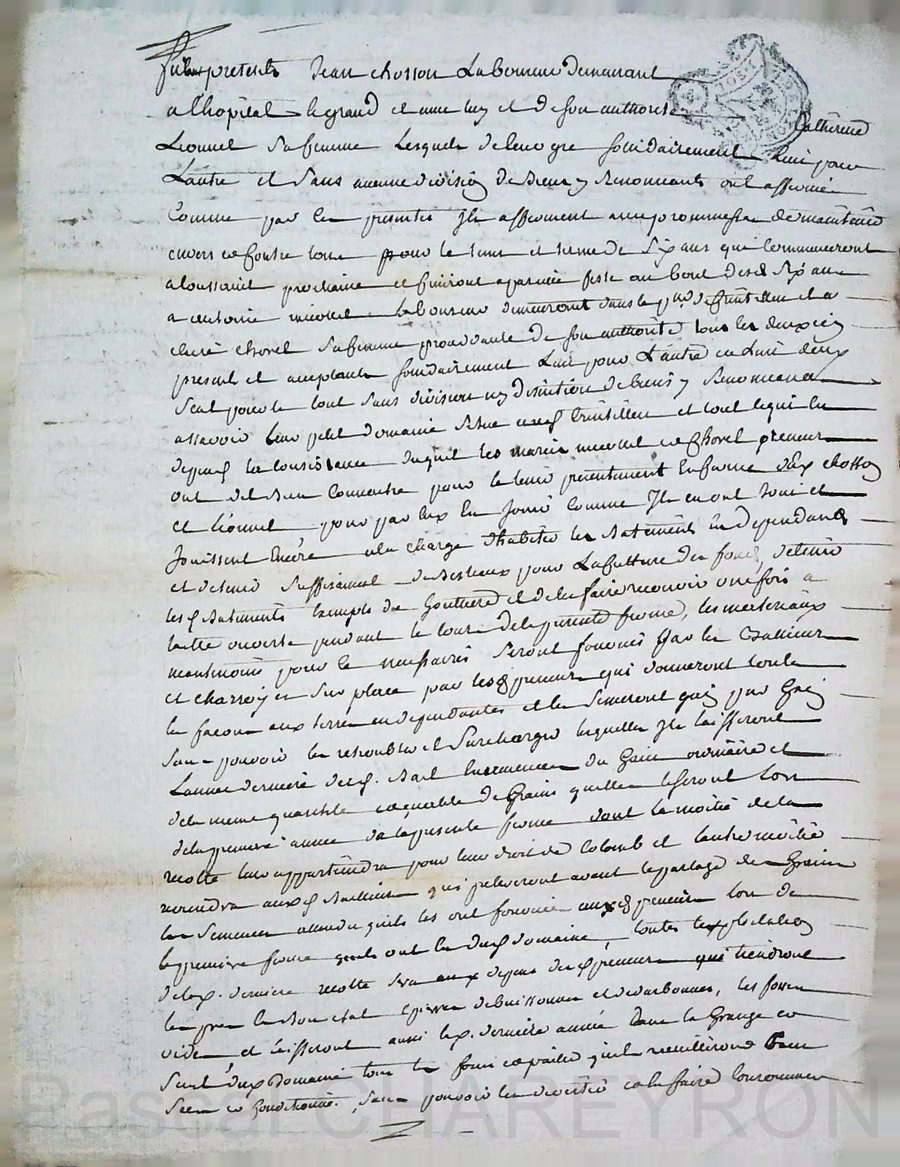 presents Jean chosson Laboureur demeurant
a lhopital le grand et avec luy et de son authorité Catherine
Lionnet sa femme Lesquels de leur gre solidairement Lun pour
Lautre et sans aucune division de biens y Renonceants ont affermé
Comme par les presentes Ils afferment avec promesse de maintenir
envers et contre tous pour le tems et terme de Six ans qui Commenceront
a toussaint prochaine et finiront a pareille feste au bout desd Six ans
a antoine laboureur demeurant dans la de et a
claire chovel sa femme procedante de son authorité tous les deux icy
presents et acceptants solidairement Lun pour Lautre un deux
Seul pour le tout sans division ny distinction de biens y Renonceant
assavoir leur petit domaine et tout ce qui en
depend la Consistance duquel les mariés et Chovel preneurs
ont dit bien Connoitre pour le tenir presentement en ferme desd chosson
et Lionnet pour par eux en jouir comme Ils en ont joui et
jouissent Encore a la charge d'habiter les Batiments en dependants
et detenir suffisament de Bestiaux pour La culture des fonds, detenir
lesd Batiments Exempts de Gouttieres et de les faire recouvrir une fois a
taille ouverte pendant le Cours de la presente ferme, les materiaux
pour ce necessaires seront fournis par les Bailleurs
et charroyés sur place par lesd preneurs qui donneront toutes
les façons aux terres en dependantes et les semeront gain par gain
sans pouvoir les retroubler et surcharger lesquelles Ils laisseront
Lannée derniere dud. Bail Ensemencées du Gain ordinaire et
de la meme quantité et qualité de Grains quelles le seront lors
de la premiere année de la presente ferme dont la moitié de la
recolte leur appartiendra pour leur droit de Colomb et lautre moitié
reviendra auxd Bailleurs qui preleveront avant le partage des Grains
les semences attendu quils les ont fournies auxd preneurs lors de
la premiere ferme quils ont eu dud domaine, toutes lexploitation
de lad. derniere recolte sera aux depens desd preneurs qui tiendront
les prés en Bon etat Epierrés debuissonnés et , les fossés
vidés et laisseront aussi lad. derniere année Dans la Grange et
sur led Domaine tous les foins et pailles quils recueilliront Bien
secs et Conditionnés, sans pouvoir les divertir et les faire Consommer
Pascal CHAREYRON